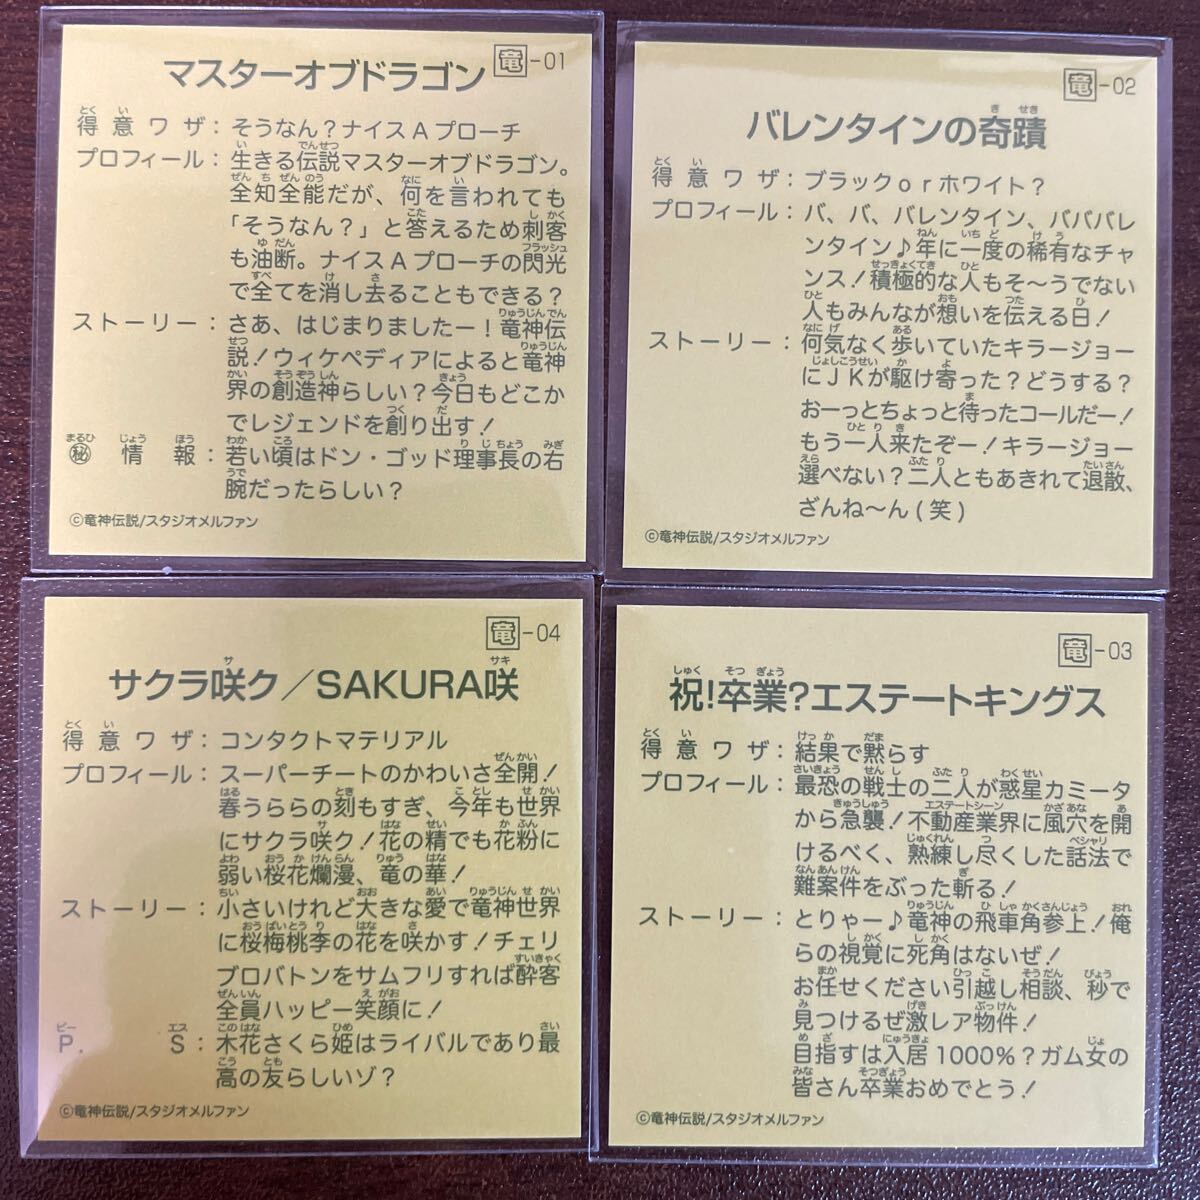 竜-01
マスターオブドラゴン
得意ワザ：そうなん？ナイスＡプローチ
プロフィール：生きる伝説マスターオブドラゴン。
全知全能だが、何を言われても
「そうなん？」と答えるため刺客
も油断。ナイスＡプローチの閃光
で全てを消し去ることもできる？
ストーリー：さあ、はじまりましたー！竜神伝
説！ウィケペディアによると竜神
界の創造神らしい？今日もどこか
でレジェンドを創り出す！
㊙情報：若い頃はドン・ゴッド理事長の右
腕だったらしい？
©竜神伝説/スタジオメルファン
竜-02
バレンタインの奇蹟
得意ワザ：ブラックｏｒホワイト？
プロフィール：バ、バ、バレンタイン、バババレ
ンタイン♪年に一度の稀有なチャ
ンス！積極的な人もそ〜うでない
人もみんなが想いを伝える日！
ストーリー：何気なく歩いていたキラージョー
にＪＫが駆け寄った？どうする？
おーっとちょっと待ったコールだー！
もう一人来たぞー！キラージョー
選べない？二人ともあきれて退散、
ざんね〜ん(笑)
©竜神伝説/スタジオメルファン
竜-04
サクラ咲ク／SAKURA咲
得意ワザ：コンタクトマテリアル
プロフィール：スーパーチートのかわいさ全開！
春うららの刻もすぎ、今年も世界
にサクラ咲ク！花の精でも花粉に
弱い桜花爛漫、竜の華！
ストーリー：小さいけれど大きな愛で竜神世界
に桜梅桃李の花を咲かす！チェリ
ブロバトンをサムフリすれば酔客
全員ハッピー笑顔に！
P.S：木花さくら姫はライバルであり最
高の友らしいゾ？
©竜神伝説/スタジオメルファン
竜-03
祝！卒業？エステートキングス
得意ワザ：結果で黙らす
プロフィール：最恐の戦士の二人が惑星カミータ
から急襲！不動産業界に風穴を開
けるべく、熟練し尽くした話法で
難案件をぶった斬る！
ストーリー：とりゃー♪竜神の飛車角参上！俺
らの視覚に死角はないぜ！
お任せください引越し相談、秒で
見つけるぜ激レア物件！
目指すは入居1000%？ガム女の
皆さん卒業おめでとう！
©竜神伝説/スタジオメルファン